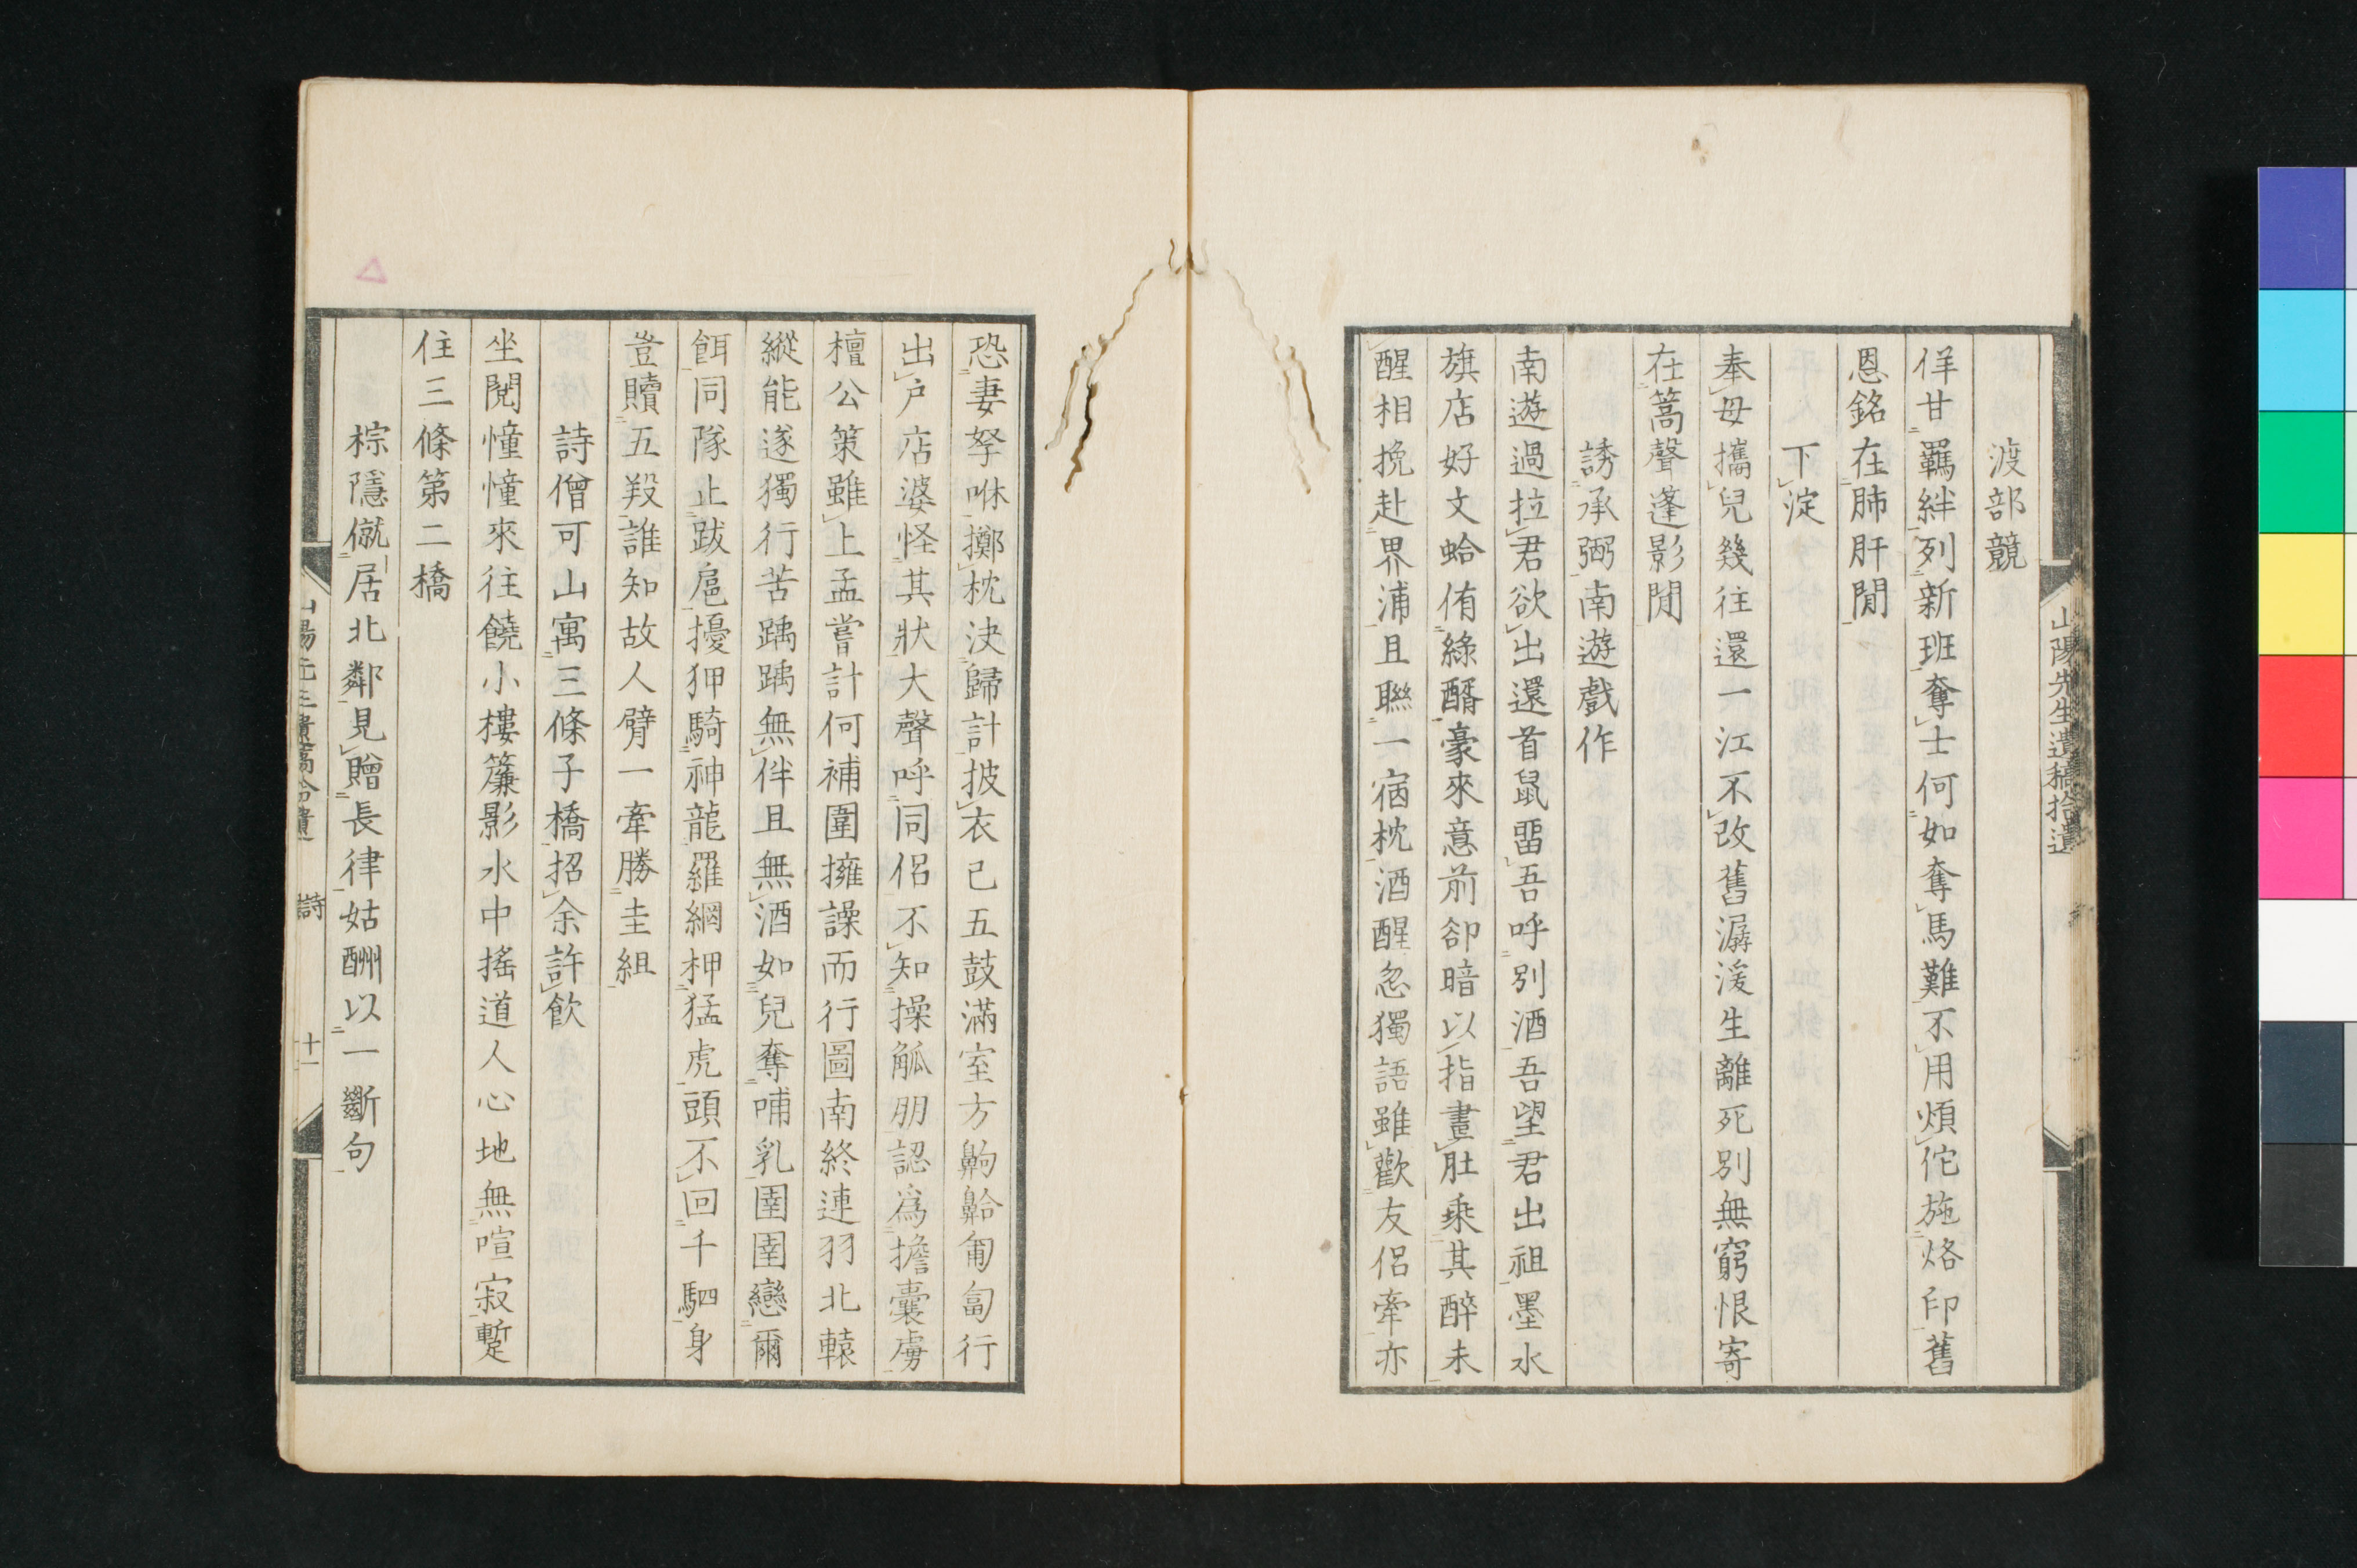 渡部競
佯甘羈絆列新班奪士何如奪馬難不用煩佗施烙印舊
恩銘在肺肝間
下淀
奉母攜兒幾往還一江不改舊潺湲生離死別無窮恨寄
在篙聲蓬影間
誘承弼南遊戲作
南遊過拉君欲出還首鼠畱吾呼別酒吾望君出祖墨水
旗店好文蛤侑綠醑豪來意前卻暗以指畫肚乘其醉未
醒相挽赴界浦且聯一宿枕酒醒忽獨語雖歡友侶牽亦
山陽先生遺稿拾遺
恐妻孥咻擲枕決歸計披衣已五鼓滿室方齁䶎匍匐行
出戶店婆怪其狀大聲呼同侶不知操觚朋認爲擔囊虜
檀公策雖上孟嘗計何補圍擁譟而行圖南終連羽北轅
縱能遂獨行苦踽踽無伴且無酒如兒奪哺乳圉圉戀爾
餌同隊止跋扈擾狎騎神龍羅網柙猛虎頭不回千駟身
豈贖五羖誰知故人臂一牽勝圭組
詩僧可山寓三條子橋招余許飮
坐閱憧憧來往饒小樓簾影水中搖道人心地無喧寂蹔
住三條第二橋
棕隱僦居北鄰見贈長律姑酬以一斷句
山陽先生遺稿拾遺
詩
十一